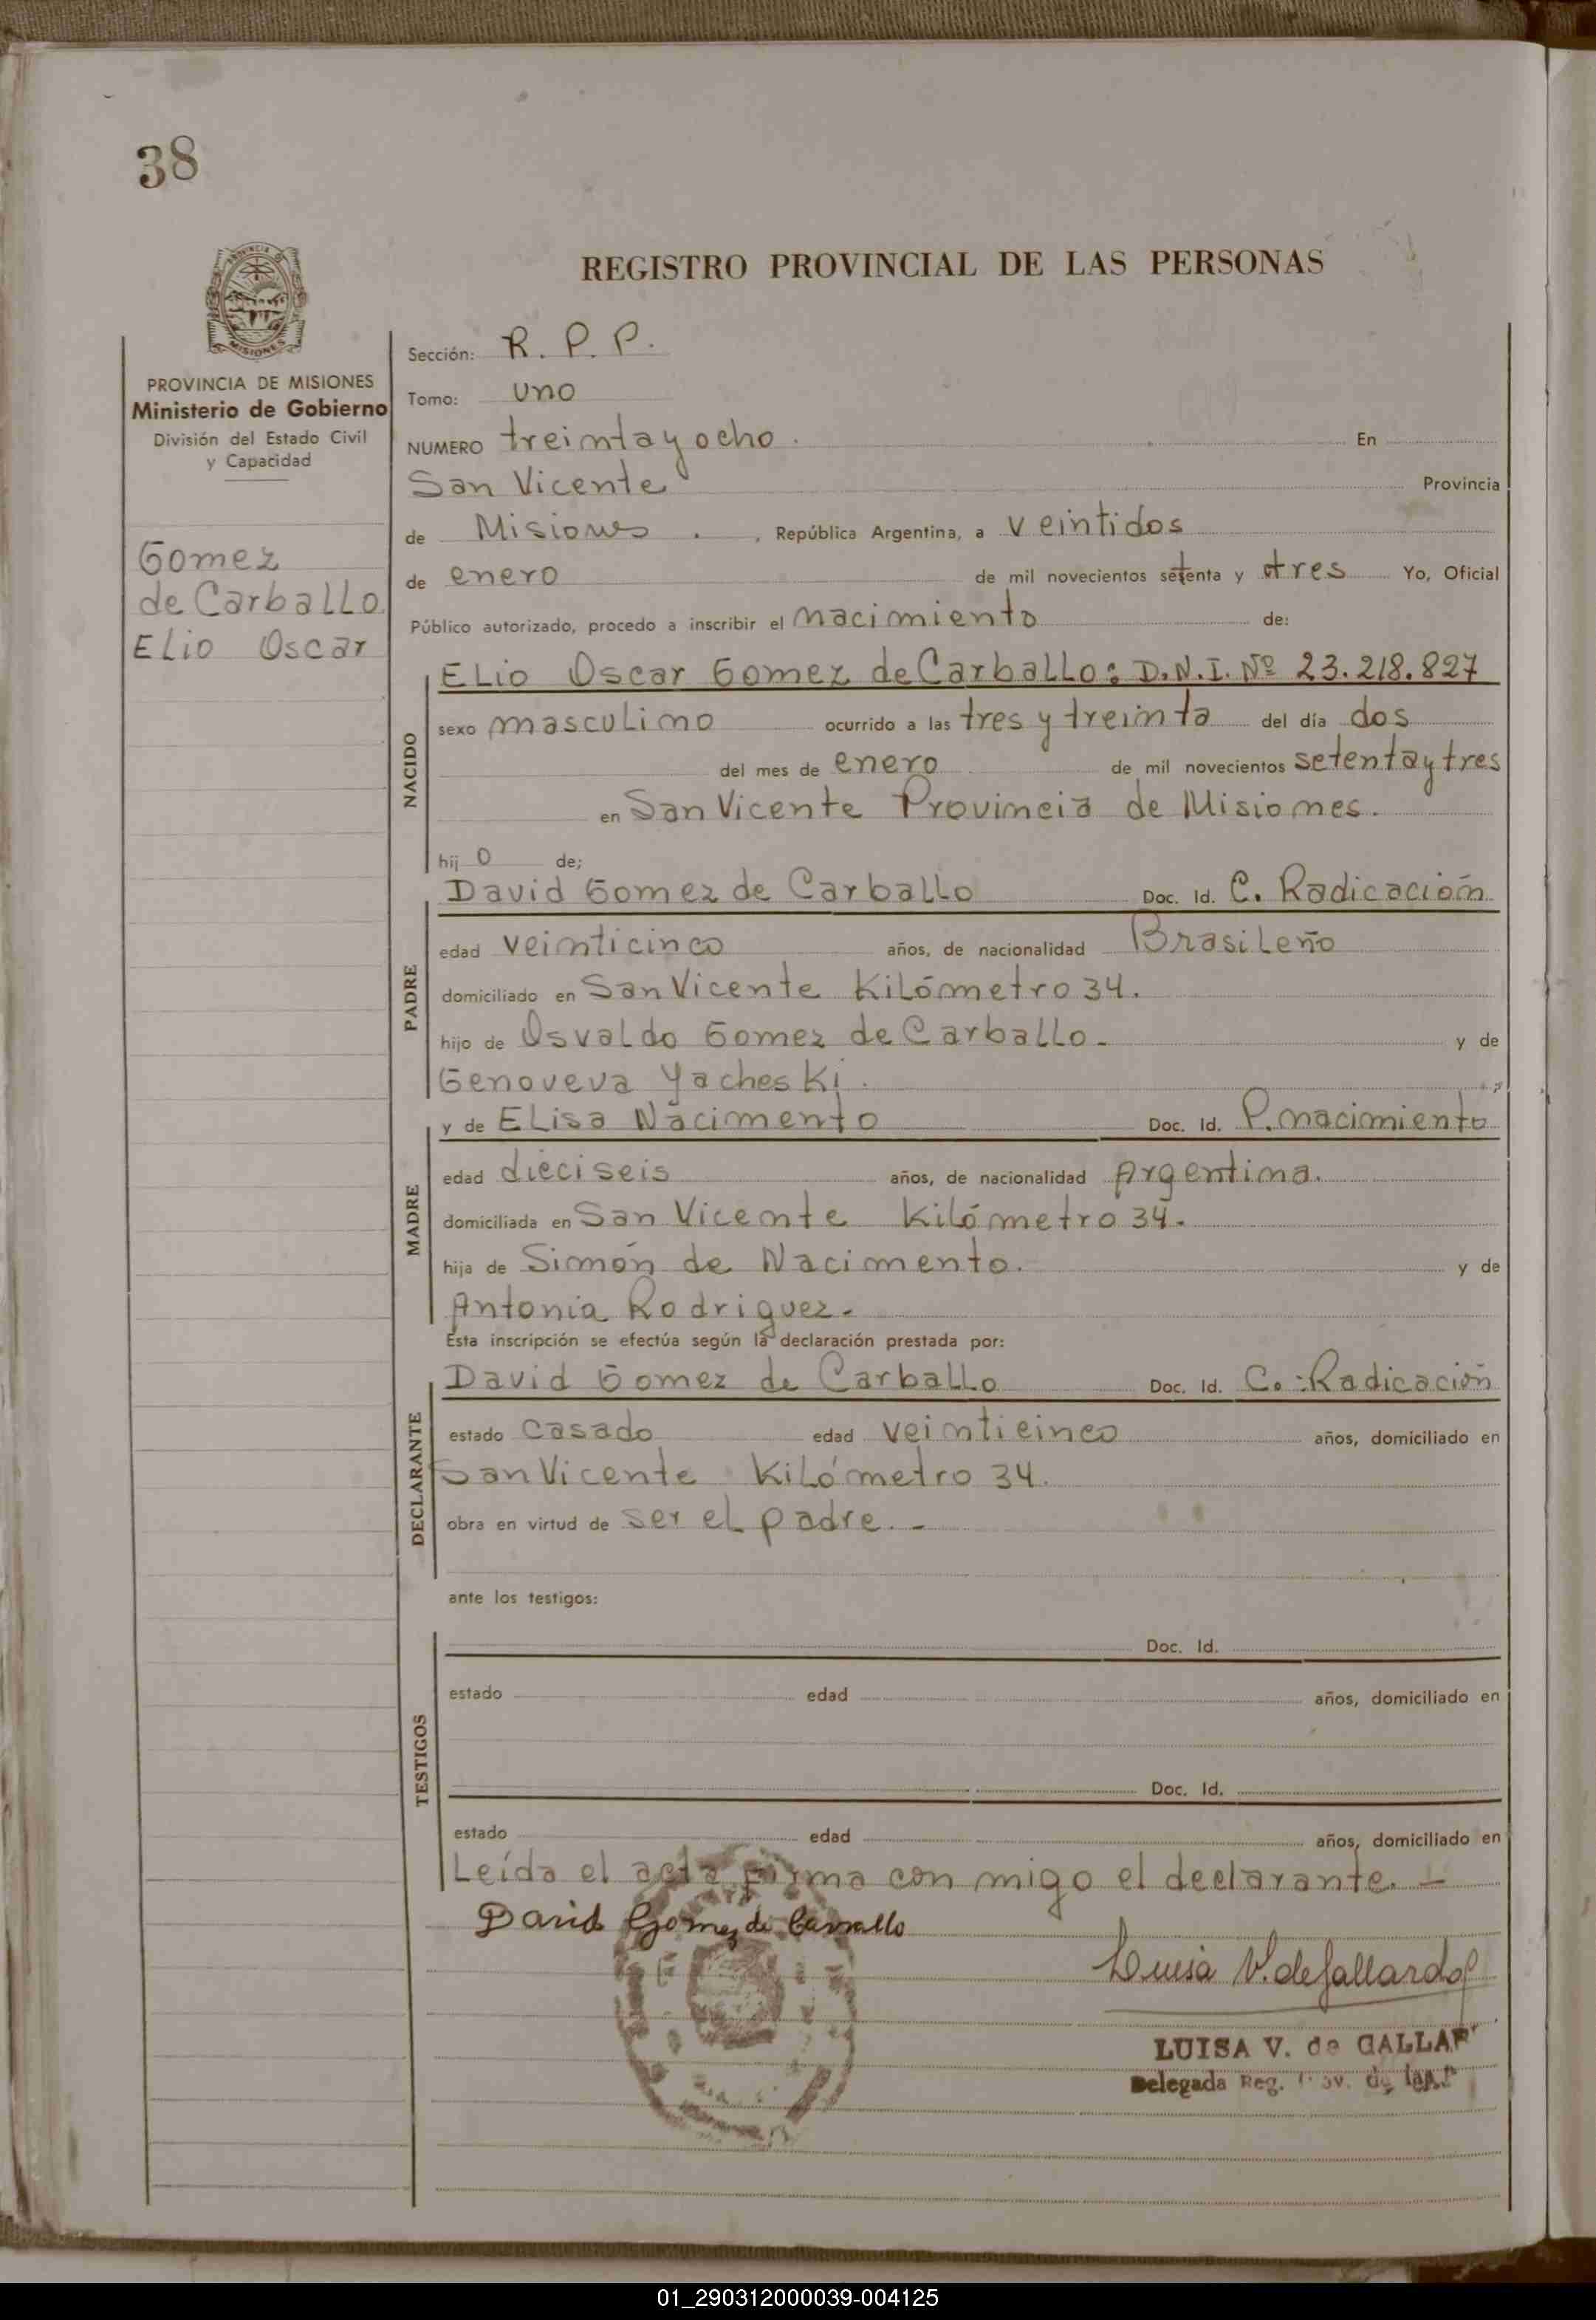 38
REGISTRO PROVINCIAL DE LAS PERSONAS
PROVINCIA DE MISIONES
Ministerio de Gobierno
División del Estado Civil
y Capacidad
Gomez
de Carballo
Elio Oscar
Sección: R. P. P.
Tomo: uno
NUMERO treinta y ocho. En
San Vicente Provincia
de Misiones . , República Argentina, a veintidos
de enero de mil novecientos setenta y tres Yo, Oficial
Público autorizado, procedo a inscribir el nacimiento de:
NACIDO
Elio Oscar Gomez de Carballo: D.N.I. Nº 23.218.827
sexo masculino ocurrido a las tres y treinta del día dos
del mes de enero de mil novecientos setenta y tres
en San Vicente Provincia de Misiones.
hij o de;
PADRE
David Gomez de Carballo Doc. Id. C. Radicación
edad veinticinco años, de nacionalidad Brasileño
domiciliado en San Vicente Kilómetro 34.
hijo de Osvaldo Gomez de Carballo. y de
Genoveva Yacheski.
MADRE
y de Elisa Nacimento Doc. Id. P. nacimiento
edad dieciseis años, de nacionalidad Argentina.
domiciliada en San Vicente Kilómetro 34.
hija de Simón de Nacimento. y de
Antonia Rodriguez.
Esta inscripción se efectúa según la declaración prestada por:
DECLARANTE
David Gomez de Carballo Doc. Id. C. Radicación
estado casado edad veinticinco años, domiciliado en
San Vicente Kilómetro 34.
obra en virtud de ser el padre. -
ante los testigos:
TESTIGOS
Doc. Id.
estado edad años, domiciliado en
Doc. Id.
estado edad años, domiciliado en
Leída el acta firma con migo el declarante. -
David Gomez de Carvallo
Luisa V. de Gallardo
LUISA V. de GALLAR
Delegada Reg.
01_290312000039-004125